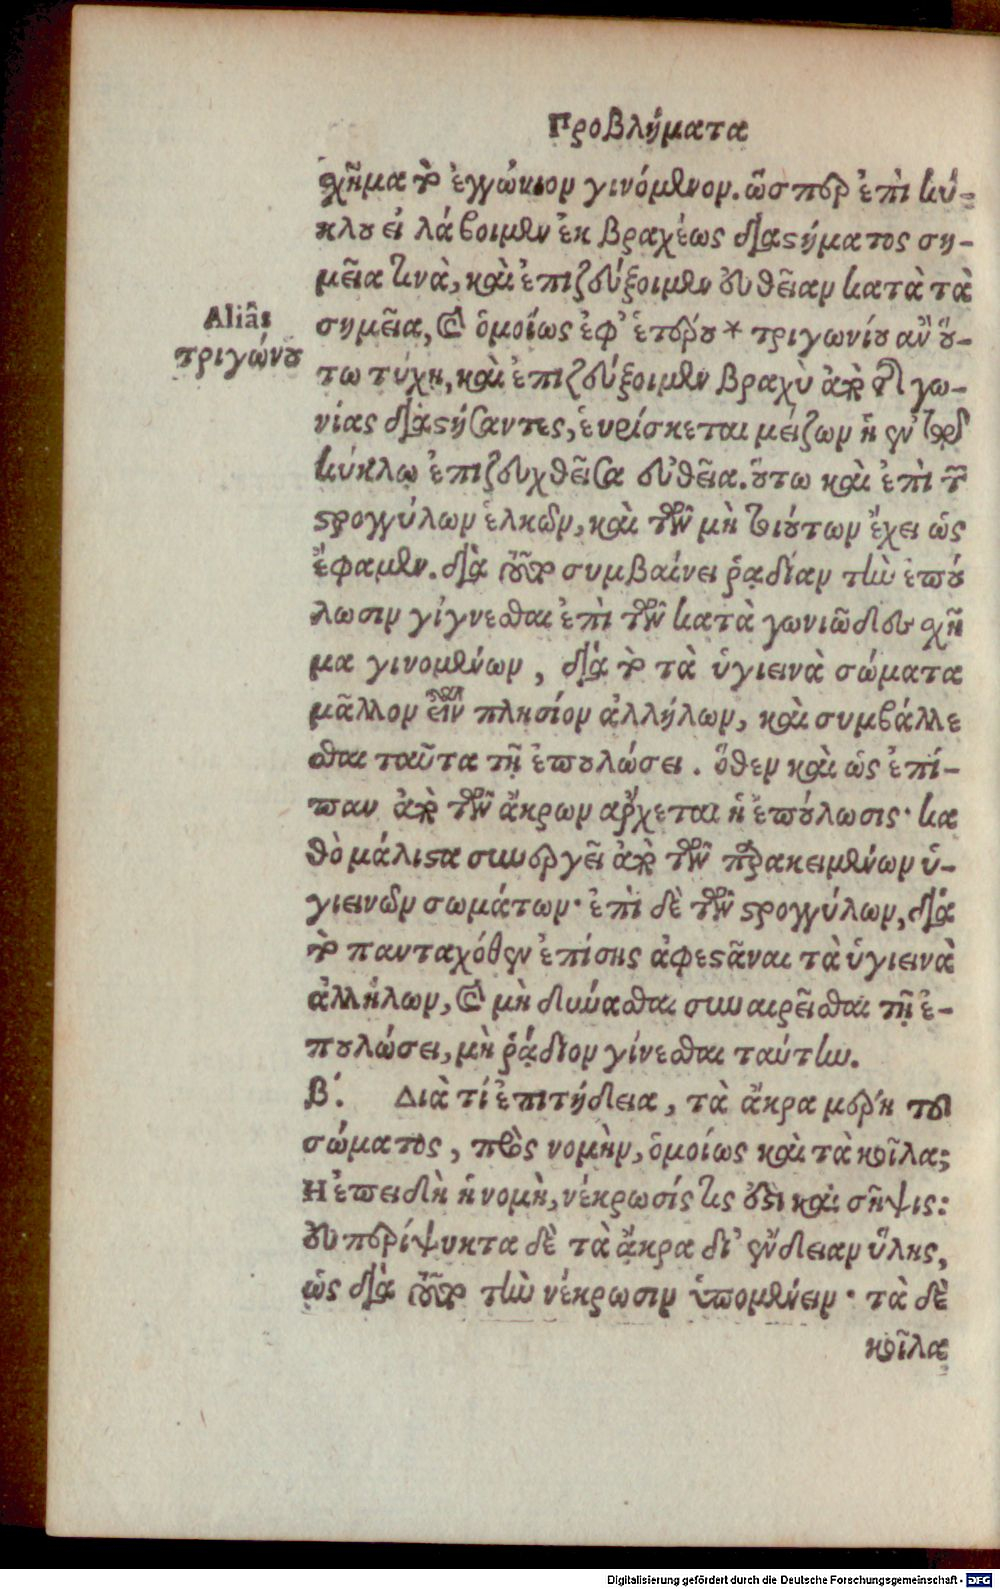 Προβλήματα
χῆμα τὸ ἐγγώνιον γινόμενον. ὥσπερ ἐπὶ κύ-
κλου εἰ λάβοιμεν ἐκ βραχέως διαστήματος ση-
μεῖα τινὰ, καὶ ἐπιζεύξοιμεν εὐθεῖαν κατὰ τὰ
Aliâs
τριγώνου
σημεῖα, καὶ ὁμοίως ἐφ' ἑτέρου * τριγωνίου ἂν οὕ-
τω τύχη, καὶ ἐπιζεύξοιμεν βραχὺ ἀπὸ τῆς γω-
νίας διαστήσαντες, ἑυρίσκεται μείζων ἡ ἐν τῷ
κύκλῳ ἐπιζευχθεῖσα εὐθεῖα. οὕτω καὶ ἐπὶ τῶν
στρογγύλων ἑλκῶν, καὶ τῶν μὴ τοιούτων ἔχει ὡς
ἔφαμεν. διὰ τοῦτο συμβαίνει ῥᾳδίαν τὴν ἐπού
λωσιν γίγνεσθαι ἐπὶ τῶν κατὰ γωνιῶδες σχῆ
μα γινομένων, διὰ τὸ τὰ ὑγιεινὰ σώματα
μᾶλλον εἶναι πλησίον ἀλλήλων, καὶ συμβάλλε
σθαι ταῦτα τῇ ἐπουλώσει. ὅθεν καὶ ὡς ἐπί-
παν ἀπὸ τῶν ἄκρων ἄρχεται ἡ ἐπούλωσις· κα
θὸ μάλιστα συνεργεῖ ἀπὸ τῶν παρακειμένων ὑ-
γιεινῶν σωμάτων· ἐπὶ δὲ τῶν στρογγύλων, διὰ
τὸ πανταχόθεν ἐπίσης ἀφεστᾶναι τὰ ὑγιεινὰ
ἀλλήλων, καὶ μὴ δύνασθαι συναιρεῖσθαι τῇ ἐ-
πουλώσει, μὴ ῥᾴδιον γίνεσθαι ταύτην.
β΄. Διὰ τί ἐπιτήδεια, τὰ ἄκρα μέρη τοῦ
σώματος, πρὸς νομὴν, ὁμοίως καὶ τὰ κοῖλα;
Η ἐπειδὴ ἡ νομὴ, νέκρωσίς τις ἐστὶ καὶ σῆψις:
εὐπερίψυκτα δὲ τὰ ἄκρα δι' ἔνδειαν ὕλης,
ὡς διὰ τοῦτο τὴν νέκρωσιν ὑπομένειν· τὰ δὲ
κοῖλα
Digitalisierung gefördert durch die Deutsche Forschungsgemeinschaft - DFG